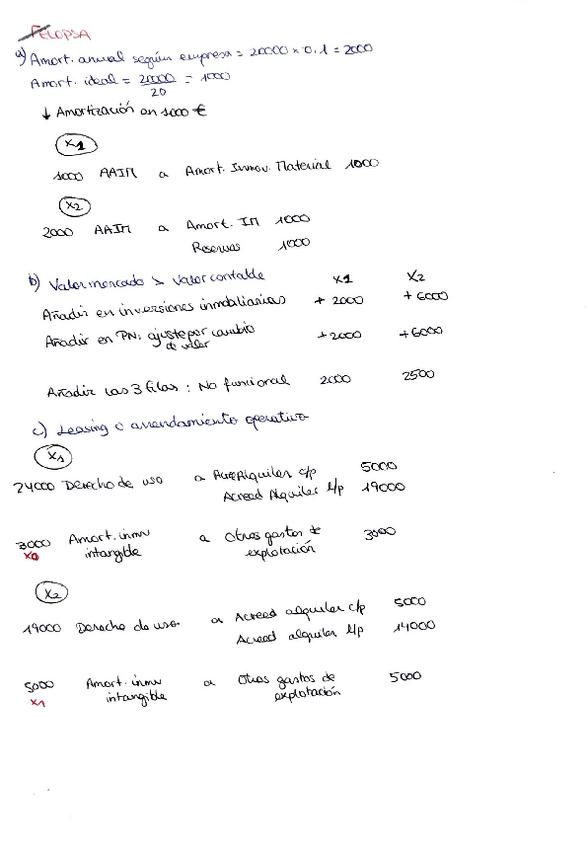 FELOPSA
a) Amort. anual según empresa = 20000 x 0.1 = 2000
Amort. ideal = 20000 / 20 = 1000
↓ Amortización en 1000 €
X1
1000 AAIM a Amort. Inmov. Material 1000
X2
2000 AAIM a Amort. IM 1000
Reservas 1000
b) Valor mercado > Valor contable X1 X2
Añadir en inversiones inmobiliarias + 2000 + 6000
Añadir en PN: ajuste por cambio de valor +2000 +6000
Añadir las 3 filas: No funcional 2000 2500
c) Leasing o arrendamiento operativo
X1
24000 Derecho de uso a Alquiler c/p 5000
Acreed Alquiler l/p 19000
3000 Amort. inmv intangible a Otros gastos de explotación 3000
X0
X2
19000 Derecho de uso a Acreed alquiler c/p 5000
Acreed alquiler l/p 14000
5000 Amort. inmv intangible a Otros gastos de explotación 5000
X1